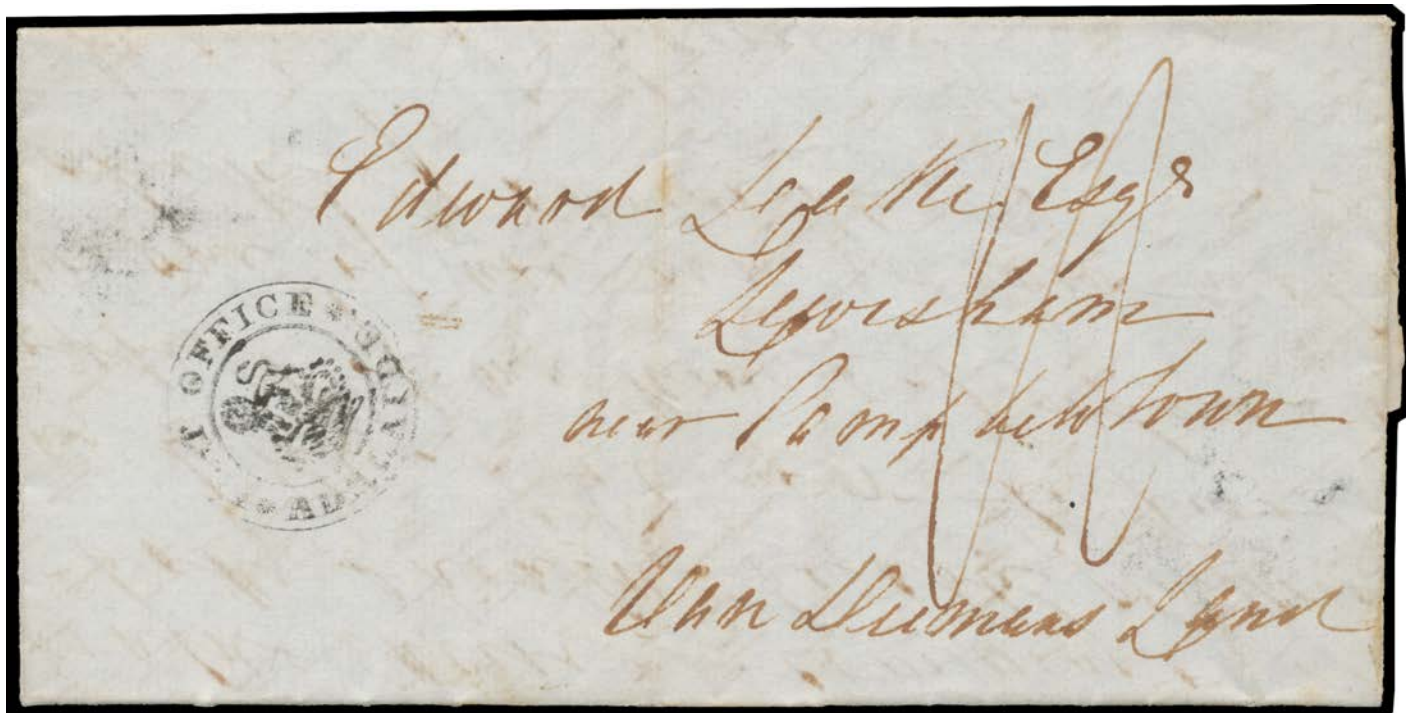 Edward Leake Esqr
Lewisham
near Campbeltown
Van Diemans Land
OFFICE